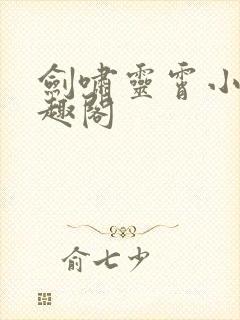 劍嘯靈霄小
趣閣
俞七少